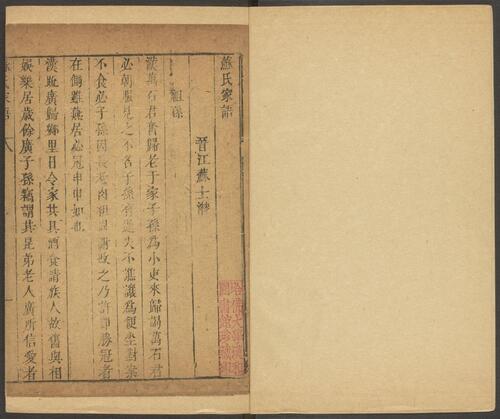 蘇氏家語
晉江蘇士潛
祖孫
漢萬石君奮歸老于家子孫為小吏來歸謁萬石君
必朝服見之不名子孫有過失不譙讓為便坐對案
不食必子孫因長老肉袒謝改之乃許即勝冠者
在側雖燕居必冠申申如也
漢疏廣歸鄉里日令家共具酒食請族人故舊與相
娛樂居歲餘廣子孫竊謂其昆弟老人廣所信愛者
哈佛大學漢和圖書館珍藏印